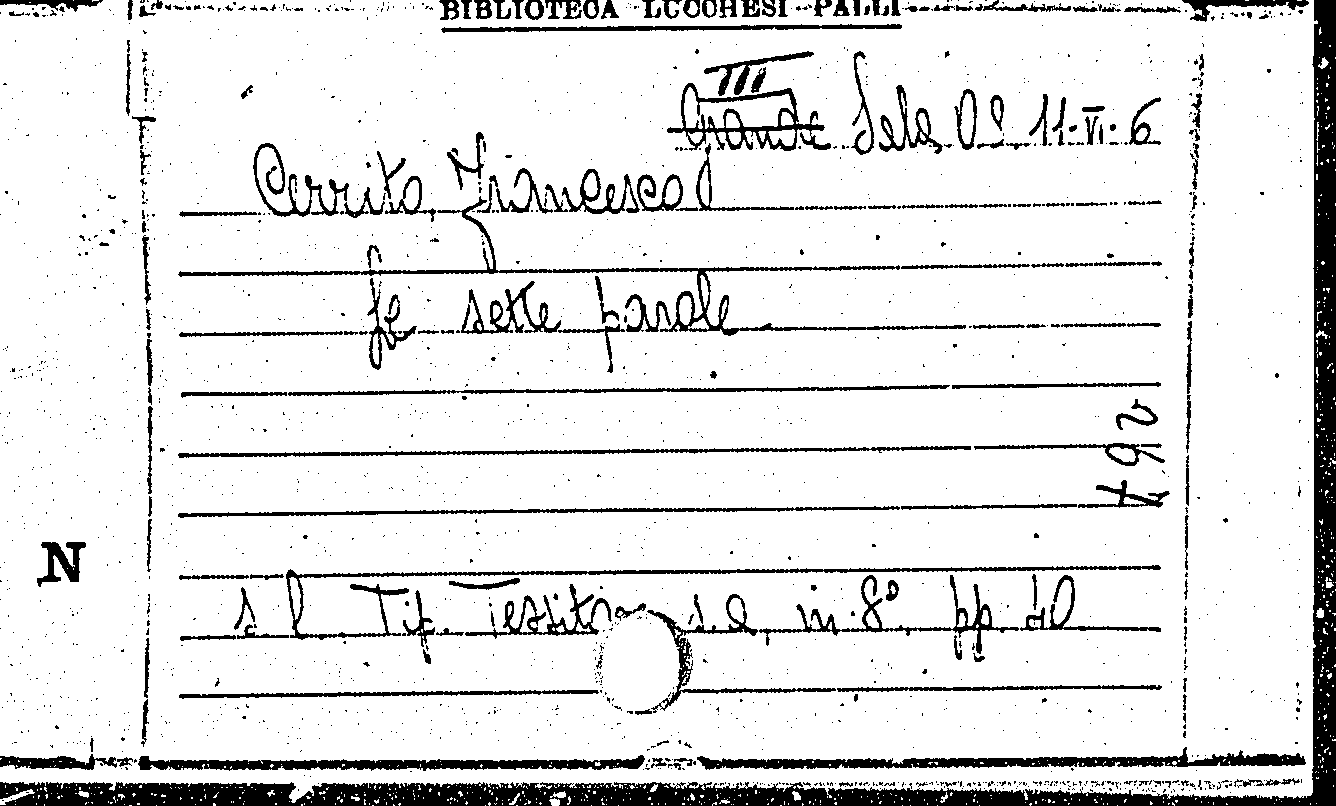 BIBLIOTECA LUCCHESI-PALLI
III
Grande Sala, O2. 11-VI-6
Cerrito, Francesco
Le sette parole.
792
N
s. l. Tip. Tessitore s. a., in-8°, pp. 40